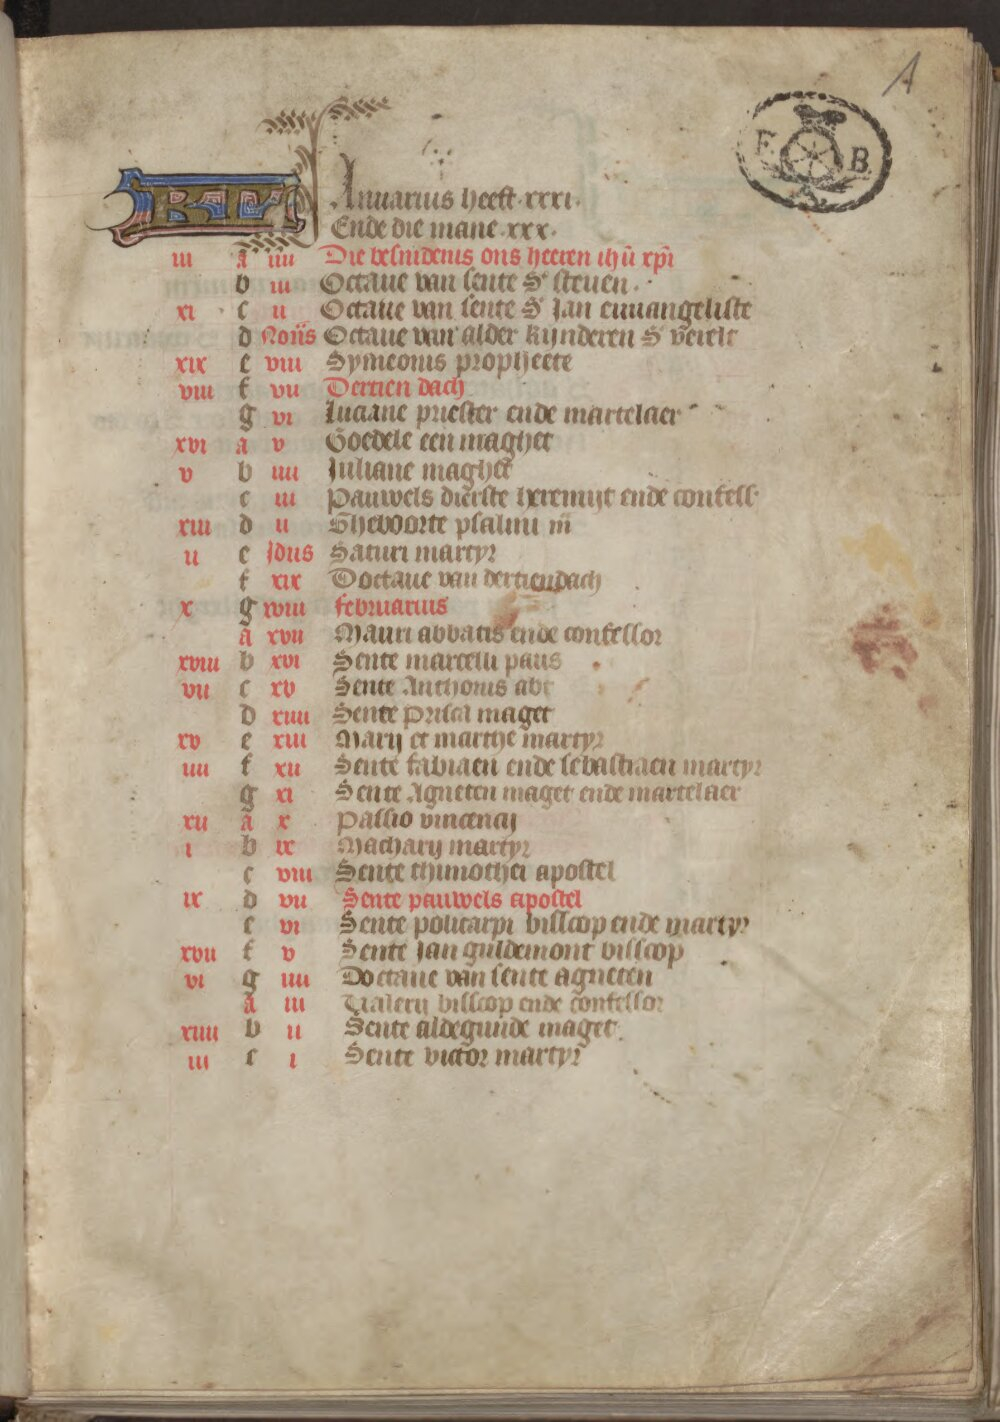 A
F. B.
KL Januarius heeft .xxxi.
Ende die mane .xxx.
iii a iiii Die besnidenis ons heeren ihū xpi
b iii Octave van sente S steven.
xi c ii Octave van sente S Jan euuangeliste
d Noīīs Octave van alder kijnderen S
xix e viii Symeonis propheete
viii f vii Dertien dach
g vi luciane priester ende martelaer
xvi a v Goedele een maghet
v b iiii Juliane maghet
c iii Pauwels die erste heremijt ende confess
xiii d ii Gheboorte psalmi m̄
ii e Idus Saturi martyr
f xix Doctave van dertiendach
x g xviii februarius
a xvii Mauri abbatis ende confessor
xviii b xvi Sente marcelli paus
vii c xv Sente Anthonis abt
d xiiii Sente Prisca maget
xv e xiii Marij et marthe martyr
iiii f xii Sente fabiaen ende sebastiaen martyr
g xi Sente Agneten maget ende martelaer
xii a x Passio vincencij
i b ix Macharij martyr
c viii Sente thimothei apostel
ix d vii Sente pauwels apostel
e vi Sente policarpi bisscop ende martyr
xvii f v Sente Jan guldemont bisscop
vi g iiii Doctave van sente agneten
a iii Valerij bisscop ende confessor
xiiii b ii Sente aldegunde maget.
iii c i Sente victor martyr